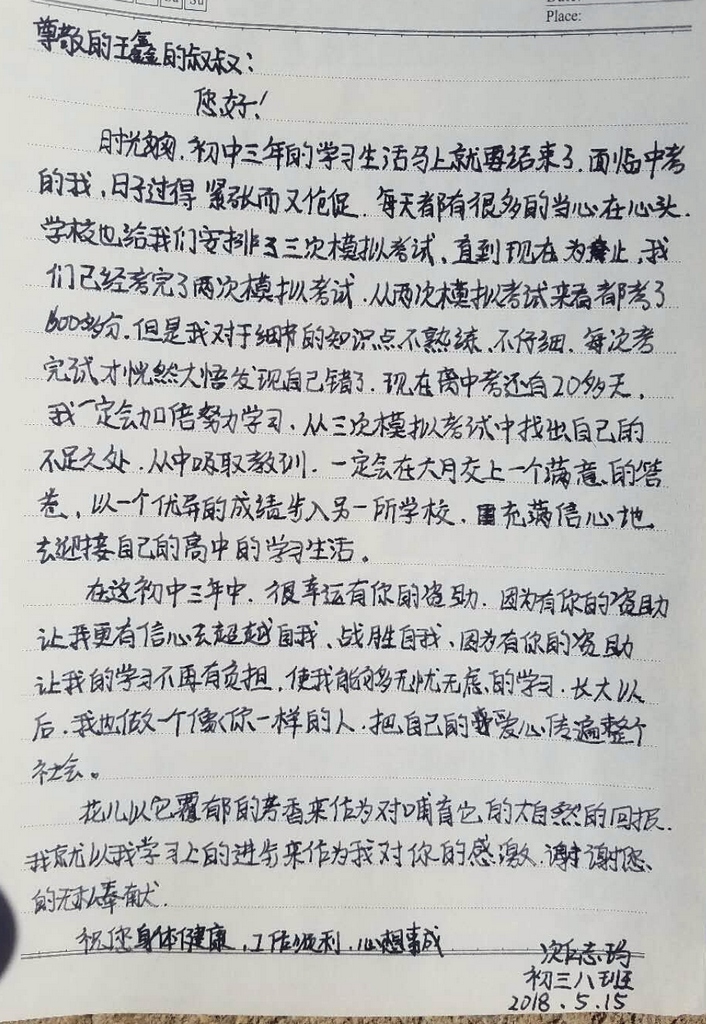 Place:
尊敬的王鑫的叔叔:
您好!
时光匆匆,初中三年的学习生活马上就要结束了,面临中考
的我,日子过得紧张而又仓促,每天都有很多的当心在心头,
学校也给我们安排了三次模拟考试,直到现在为止,我
们已经考完了两次模拟考试,从两次模拟考试来看都考了
600多分,但是我对于细节的知识点不熟练、不仔细,每次考
完试才恍然大悟发现自己错了,现在离中考还有20多天,
我一定会加倍努力学习,从三次模拟考试中找出自己的
不足之处,从中吸取教训,一定会在六月交上一个满意的答
卷,以一个优异的成绩步入另一所学校,充满信心地
去迎接自己的高中的学习生活。
在这初中三年中,很幸运有你的资助,因为有你的资助
让我更有信心去超越自我、战胜自我,因为有你的资助
让我的学习不再有负担,使我能够无忧无虑的学习,长大以
后,我也做一个像你一样的人,把自己的爱心传遍整个
社会。
花儿以它馥郁的芳香来作为对哺育它的大自然的回报,
我就以我学习上的进步来作为我对你的感激,谢谢您
的无私奉献.
祝您身体健康,工作顺利,心想事成
志
初三八班
2018.5.15